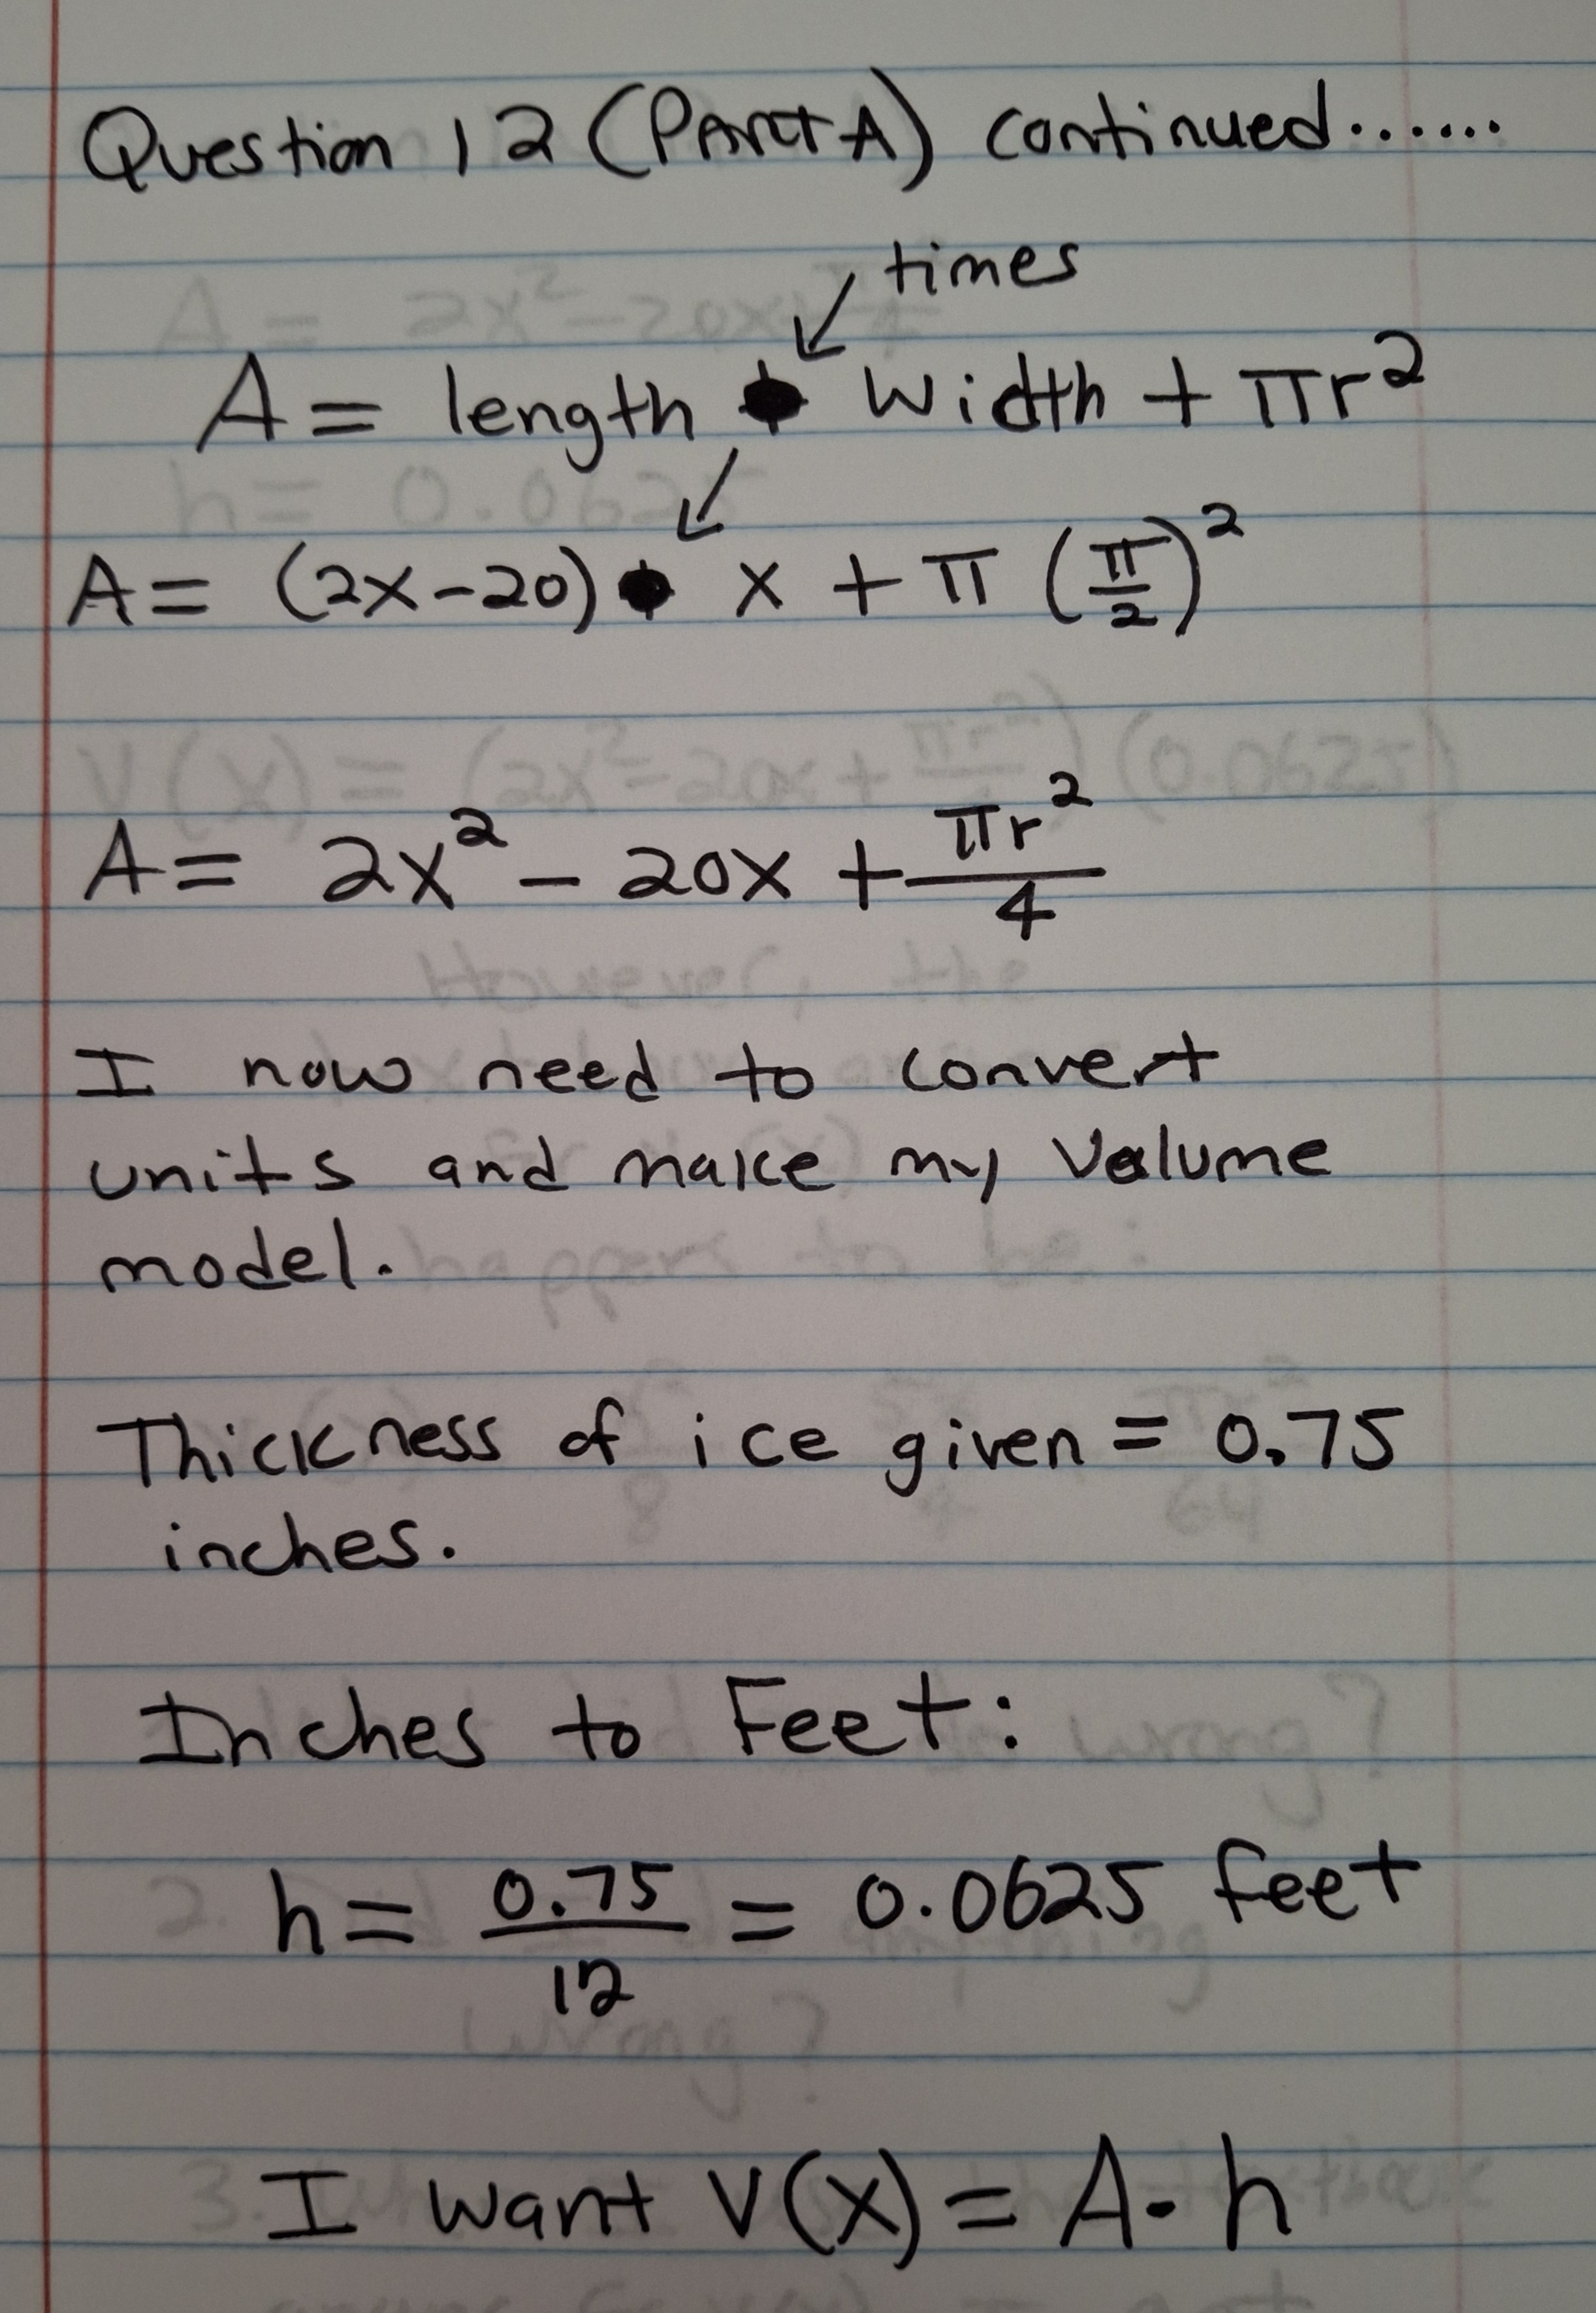 Question 12 (Part A) continued......
times
A = length • width + πr²
A = (2x-20) • x + π (π/2)²
A = 2x² - 20x + πr²/4
I now need to convert
units and make my volume
model.
Thickness of ice given = 0.75
inches.
Inches to Feet:
h = 0.75/12 = 0.0625 feet
I want V(x) = A • h